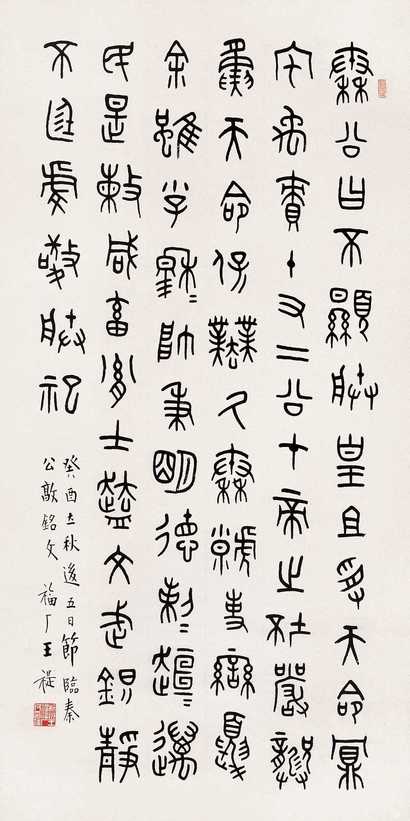 秦公曰不顯朕皇且受天命鼏
宅禹責十又二公才帝之坏嚴龏
夤天命保業氒秦虩事蠻夏
余雖小子穆〻帥秉明德剌〻趄〻邁
民是敕咸畜胤士盍〻文武鎮靜
不廷虔敬朕祀
癸酉立秋後五日節臨秦
公敦銘文 福厂王禔